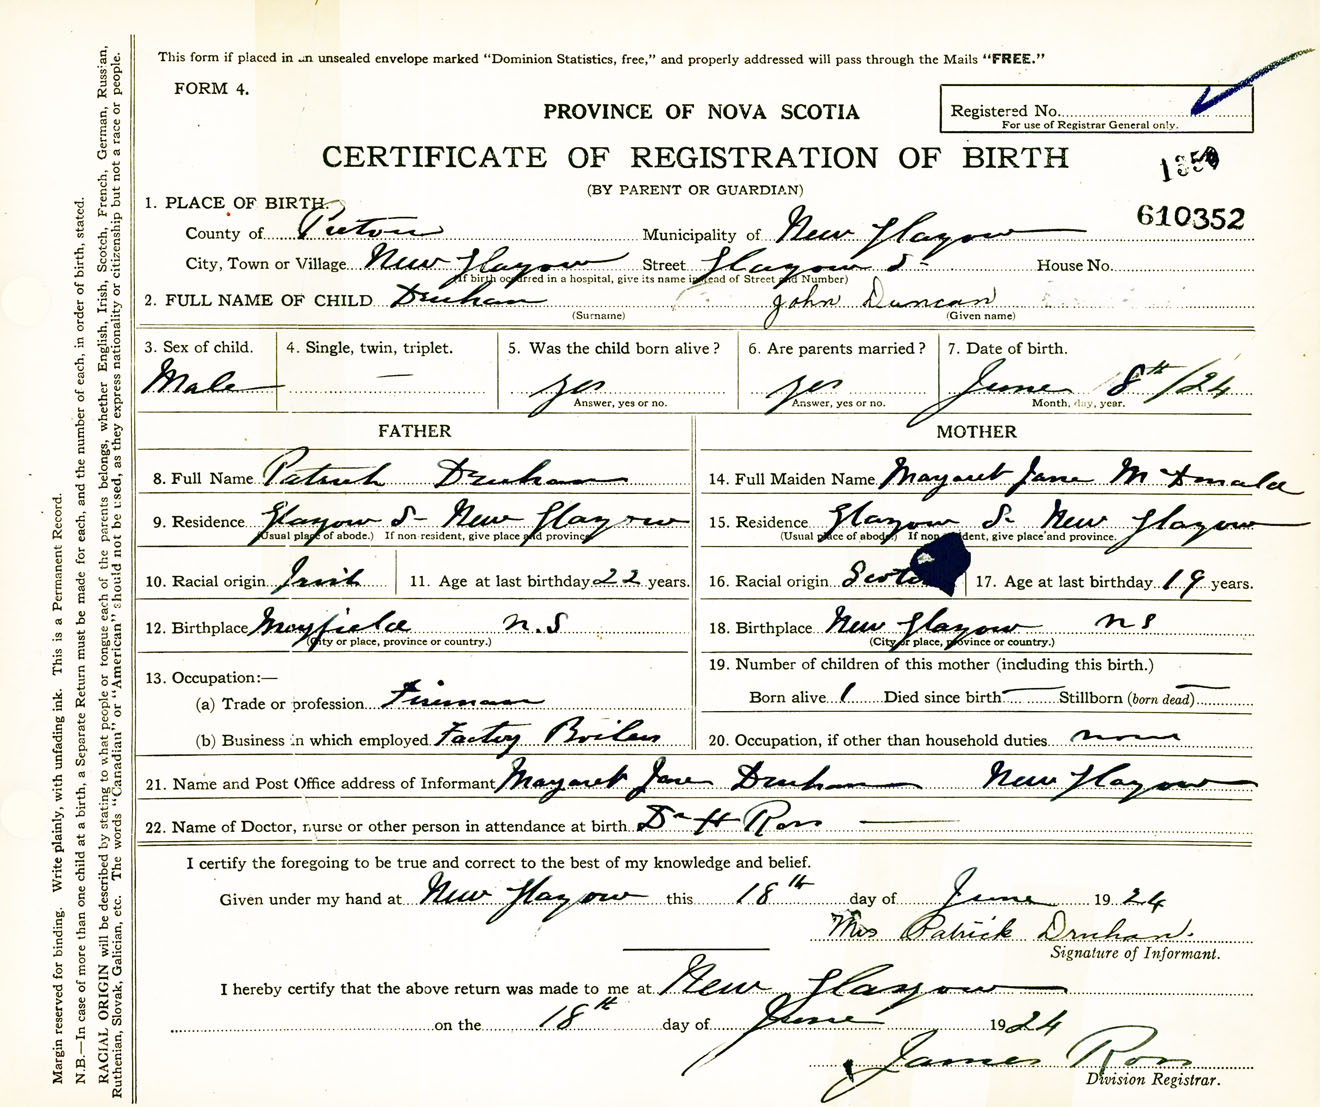 This form if placed in an unsealed envelope marked "Dominion Statistics, free," and properly addressed will pass through the Mails "FREE."
FORM 4.
PROVINCE OF NOVA SCOTIA
Registered No.
For use of Registrar General only.
CERTIFICATE OF REGISTRATION OF BIRTH
(BY PARENT OR GUARDIAN)
610352
1. PLACE OF BIRTH.
County of Pictou Municipality of New Glasgow
City, Town or Village New Glasgow Street Glasgow S- House No.
(If birth occurred in a hospital, give its name instead of Street and Number)
2. FULL NAME OF CHILD Druhan John Duncan
(Surname) (Given name)
3. Sex of child. 4. Single, twin, triplet. 5. Was the child born alive? 6. Are parents married? 7. Date of birth.
Male — yes yes June 8th/24
Answer, yes or no. Answer, yes or no. Month, day, year.
FATHER MOTHER
8. Full Name Patrick Druhan 14. Full Maiden Name Margaret Jane McDonald
9. Residence Glasgow S- New Glasgow 15. Residence Glasgow S- New Glasgow
(Usual place of abode.) If non-resident, give place and province. (Usual place of abode.) If non-resident, give place and province.
10. Racial origin Irish 11. Age at last birthday 22 years. 16. Racial origin 17. Age at last birthday 19 years.
12. Birthplace Mayfield N.S 18. Birthplace New Glasgow NS
(City or place, province or country.) (City or place, province or country.)
13. Occupation:— 19. Number of children of this mother (including this birth.)
(a) Trade or profession Fireman Born alive 1 Died since birth — Stillborn (born dead) —
(b) Business in which employed Factory Boilers 20. Occupation, if other than household duties none
21. Name and Post Office address of Informant Margaret Jane Druhan New Glasgow
22. Name of Doctor, nurse or other person in attendance at birth Dr H Ross
I certify the foregoing to be true and correct to the best of my knowledge and belief.
Given under my hand at New Glasgow this 18th day of June 1924
Mrs Patrick Druhan.
Signature of Informant.
I hereby certify that the above return was made to me at New Glasgow
on the 18th day of June 1924
James Ross
Division Registrar.
Margin reserved for binding. Write plainly, with unfading ink. This is a Permanent Record.
N.B.—In case of more than one child at a birth, a Separate Return must be made for each, and the number of each, in order of birth, stated.
RACIAL ORIGIN will be described by stating to what people or tongue each of the parents belongs, whether English, Irish, Scotch, French, German, Russian,
Ruthenian, Slovak, Galician, etc. The words "Canadian" or "American" should not be used, as they express nationality or citizenship but not a race or people.